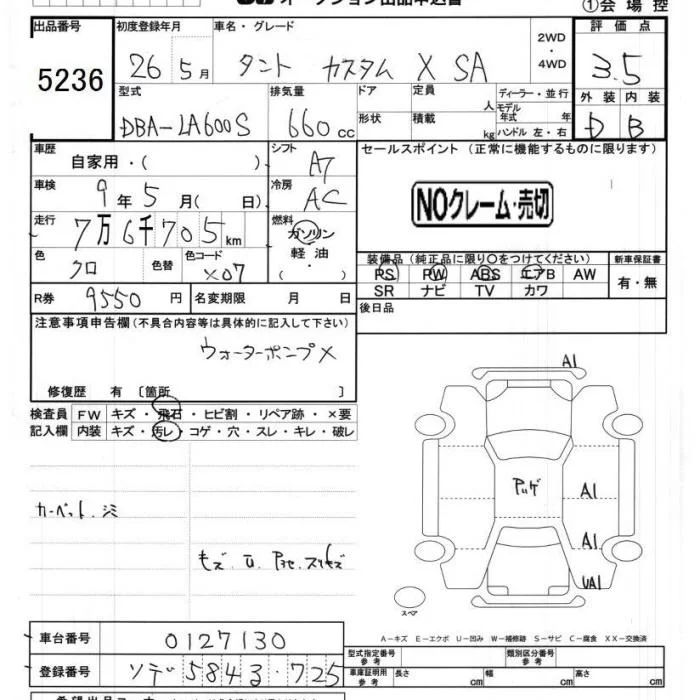 オークション出品申込書 ①会場控
出品番号 初度登録年月 車名・グレード 2WD ・ 4WD 評価点
5236 26 5月 タント カスタム X SA 3.5
型式 排気量 ドア 定員 人 ディーラー・並行 外装 内装
DBA-LA600S 660cc 形状 積載 kg モデル年式 年 ハンドル 左・右 D B
車歴 自家用・( ) シフト A7 セールスポイント (正常に機能するものに限ります)
車検 9年5月( 日) 冷房 AC NOクレーム・売切
走行 7万6千705km 燃料 ガソリン
軽油
・( )
色 クロ 色替 色コード X07 装備品 (純正品に限り○をつけてください) 新車保証書
PS PW ABS エアB AW 有・無
SR ナビ TV カワ
R券 9550円 名変期限 月 日 後日品
注意事項申告欄 (不具合内容等は具体的に記入して下さい)
ウォーターポンプ×
修復歴 有 〔箇所 〕
検査員 FW キズ・飛石・ヒビ割・リペア跡・×要
記入欄 内装 キズ・汚レ・コゲ・穴・スレ・キレ・破レ
A1
A1
A1
UA1
カーペット シミ
スペア
A-キズ E-エクボ U-凹み W-補修跡 S-サビ C-腐食 XX-交換済
車台番号 0127130 型式指定番号 参考 類別区分番号 参考
登録番号 ソデ 5843 725 車庫証明用 参考 長さ cm 幅 cm 高さ cm